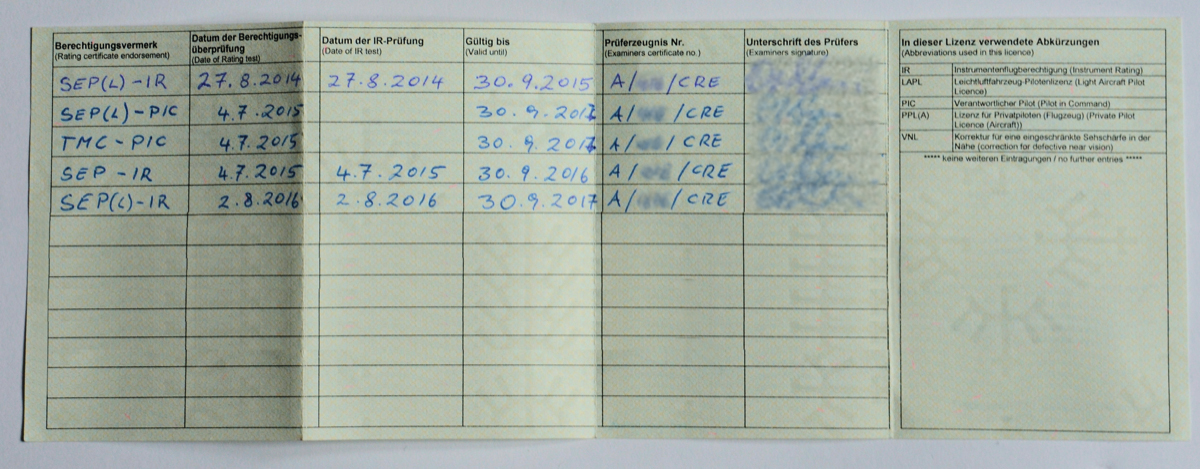 Berechtigungsvermerk
(Rating certificate endorsement)
Datum der Berechtigungs-
überprüfung
(Date of Rating test)
Datum der IR-Prüfung
(Date of IR test)
Gültig bis
(Valid until)
Prüferzeugnis Nr.
(Examiners certificate no.)
Unterschrift des Prüfers
(Examiners signature)
SEP(L)-IR 27.8.2014 27.8.2014 30.9.2015 A/ /CRE
SEP(L)-PIC 4.7.2015 30.9.2017 A/ /CRE
TMC-PIC 4.7.2015 30.9.2017 A/ /CRE
SEP-IR 4.7.2015 4.7.2015 30.9.2016 A/ /CRE
SEP(L)-IR 2.8.2016 2.8.2016 30.9.2017 A/ /CRE
In dieser Lizenz verwendete Abkürzungen
(Abbreviations used in this licence)
IR Instrumentenflugberechtigung (Instrument Rating)
LAPL Leichtluftfahrzeug-Pilotenlizenz (Light Aircraft Pilot
Licence)
PIC Verantwortlicher Pilot (Pilot in Command)
PPL(A) Lizenz für Privatpiloten (Flugzeug) (Private Pilot
Licence (Aircraft))
VNL Korrektur für eine eingeschränkte Sehschärfe in der
Nähe (correction for defective near vision)
***** keine weiteren Eintragungen / no further entries *****